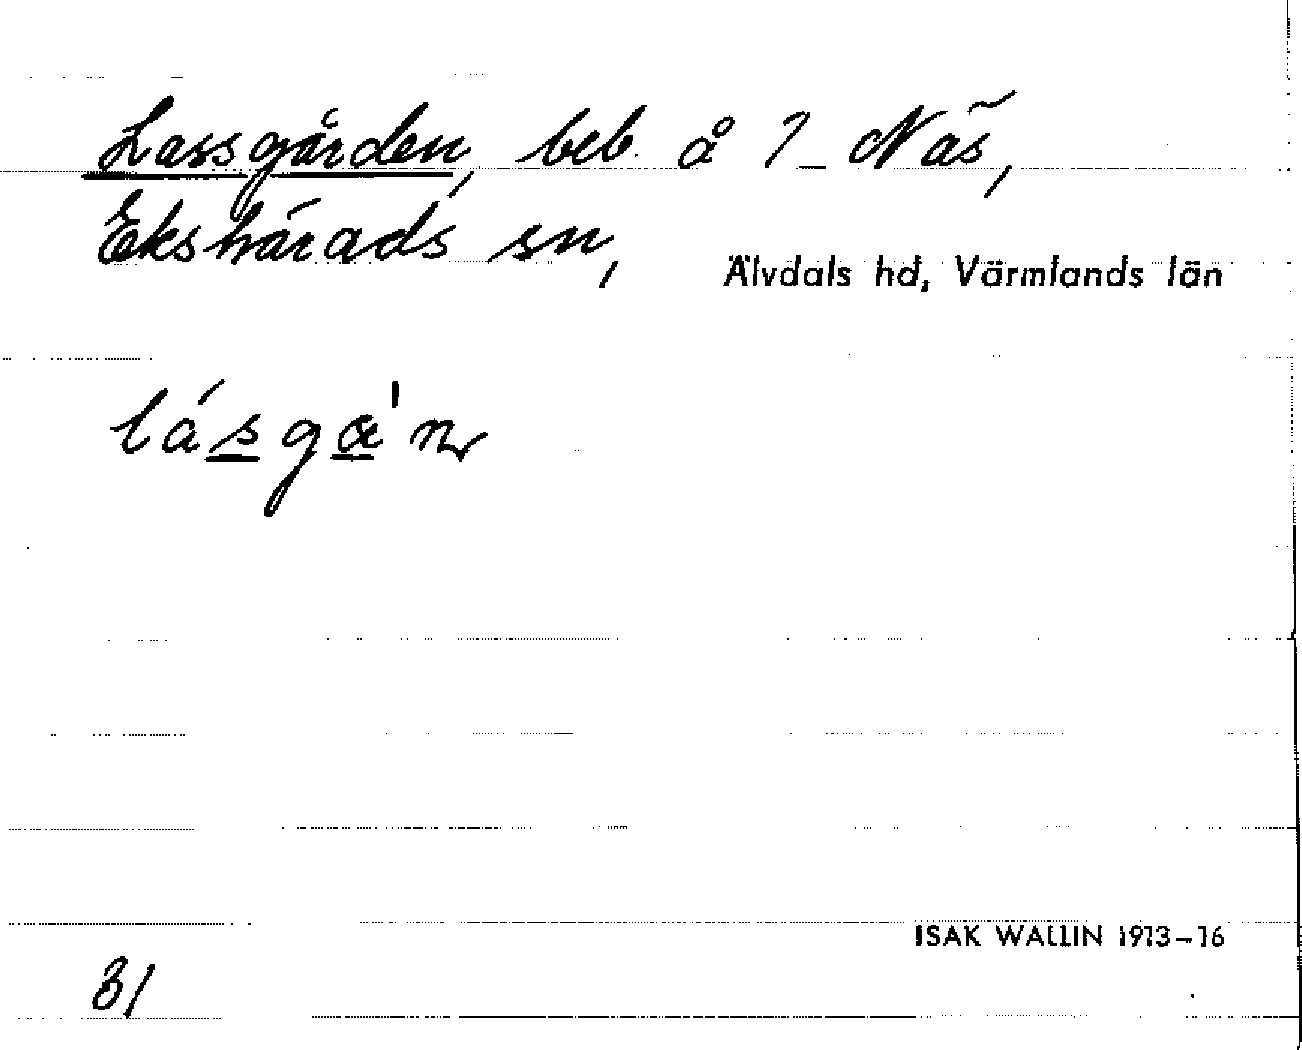 Lassgården, beb. å ? Näs,
Ekshärads sn, Älvdals hd, Värmlands län
lásgα'n
ISAK WALLIN 1913–16
31